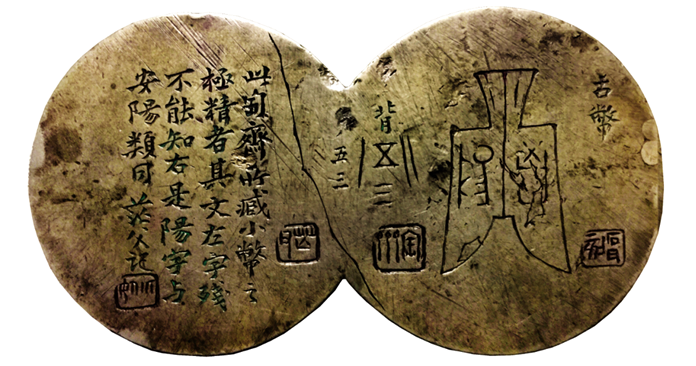 古幣
背
五三
五三
此匋齋所藏小幣之
極精者其文左字殘
不能知右是陽字与
安陽類同茫父記